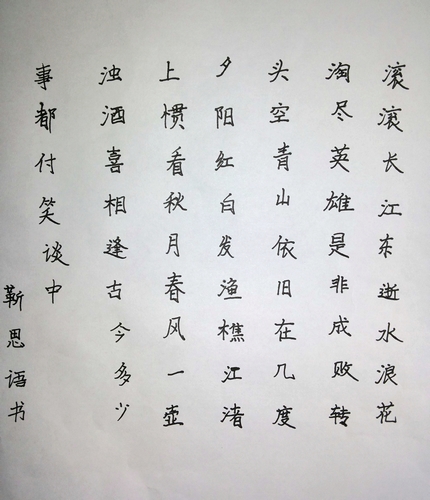 滚滚长江东逝水浪花
淘尽英雄是非成败转
头空青山依旧在几度
夕阳红白发渔樵江渚
上惯看秋月春风一壶
浊酒喜相逢古今多少
事都付笑谈中
靳思语书